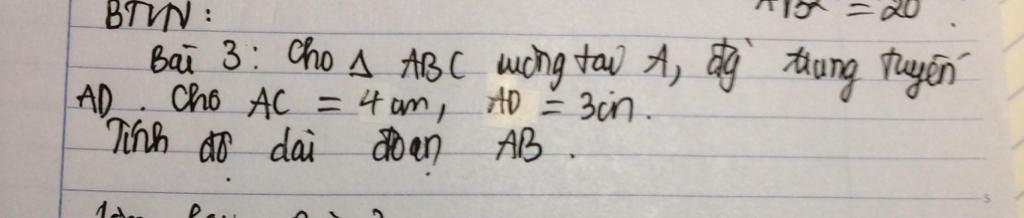 BTVN:
= 20.
Bài 3: Cho Δ ABC vuông tại A, đg` trung tuyến
AD. Cho AC = 4 cm, AD = 3cm.
Tính độ dài đoạn AB.